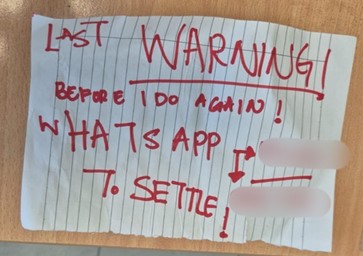 LAST WARNING!
BEFORE I DO AGAIN!
WHATSAPP
TO SETTLE!